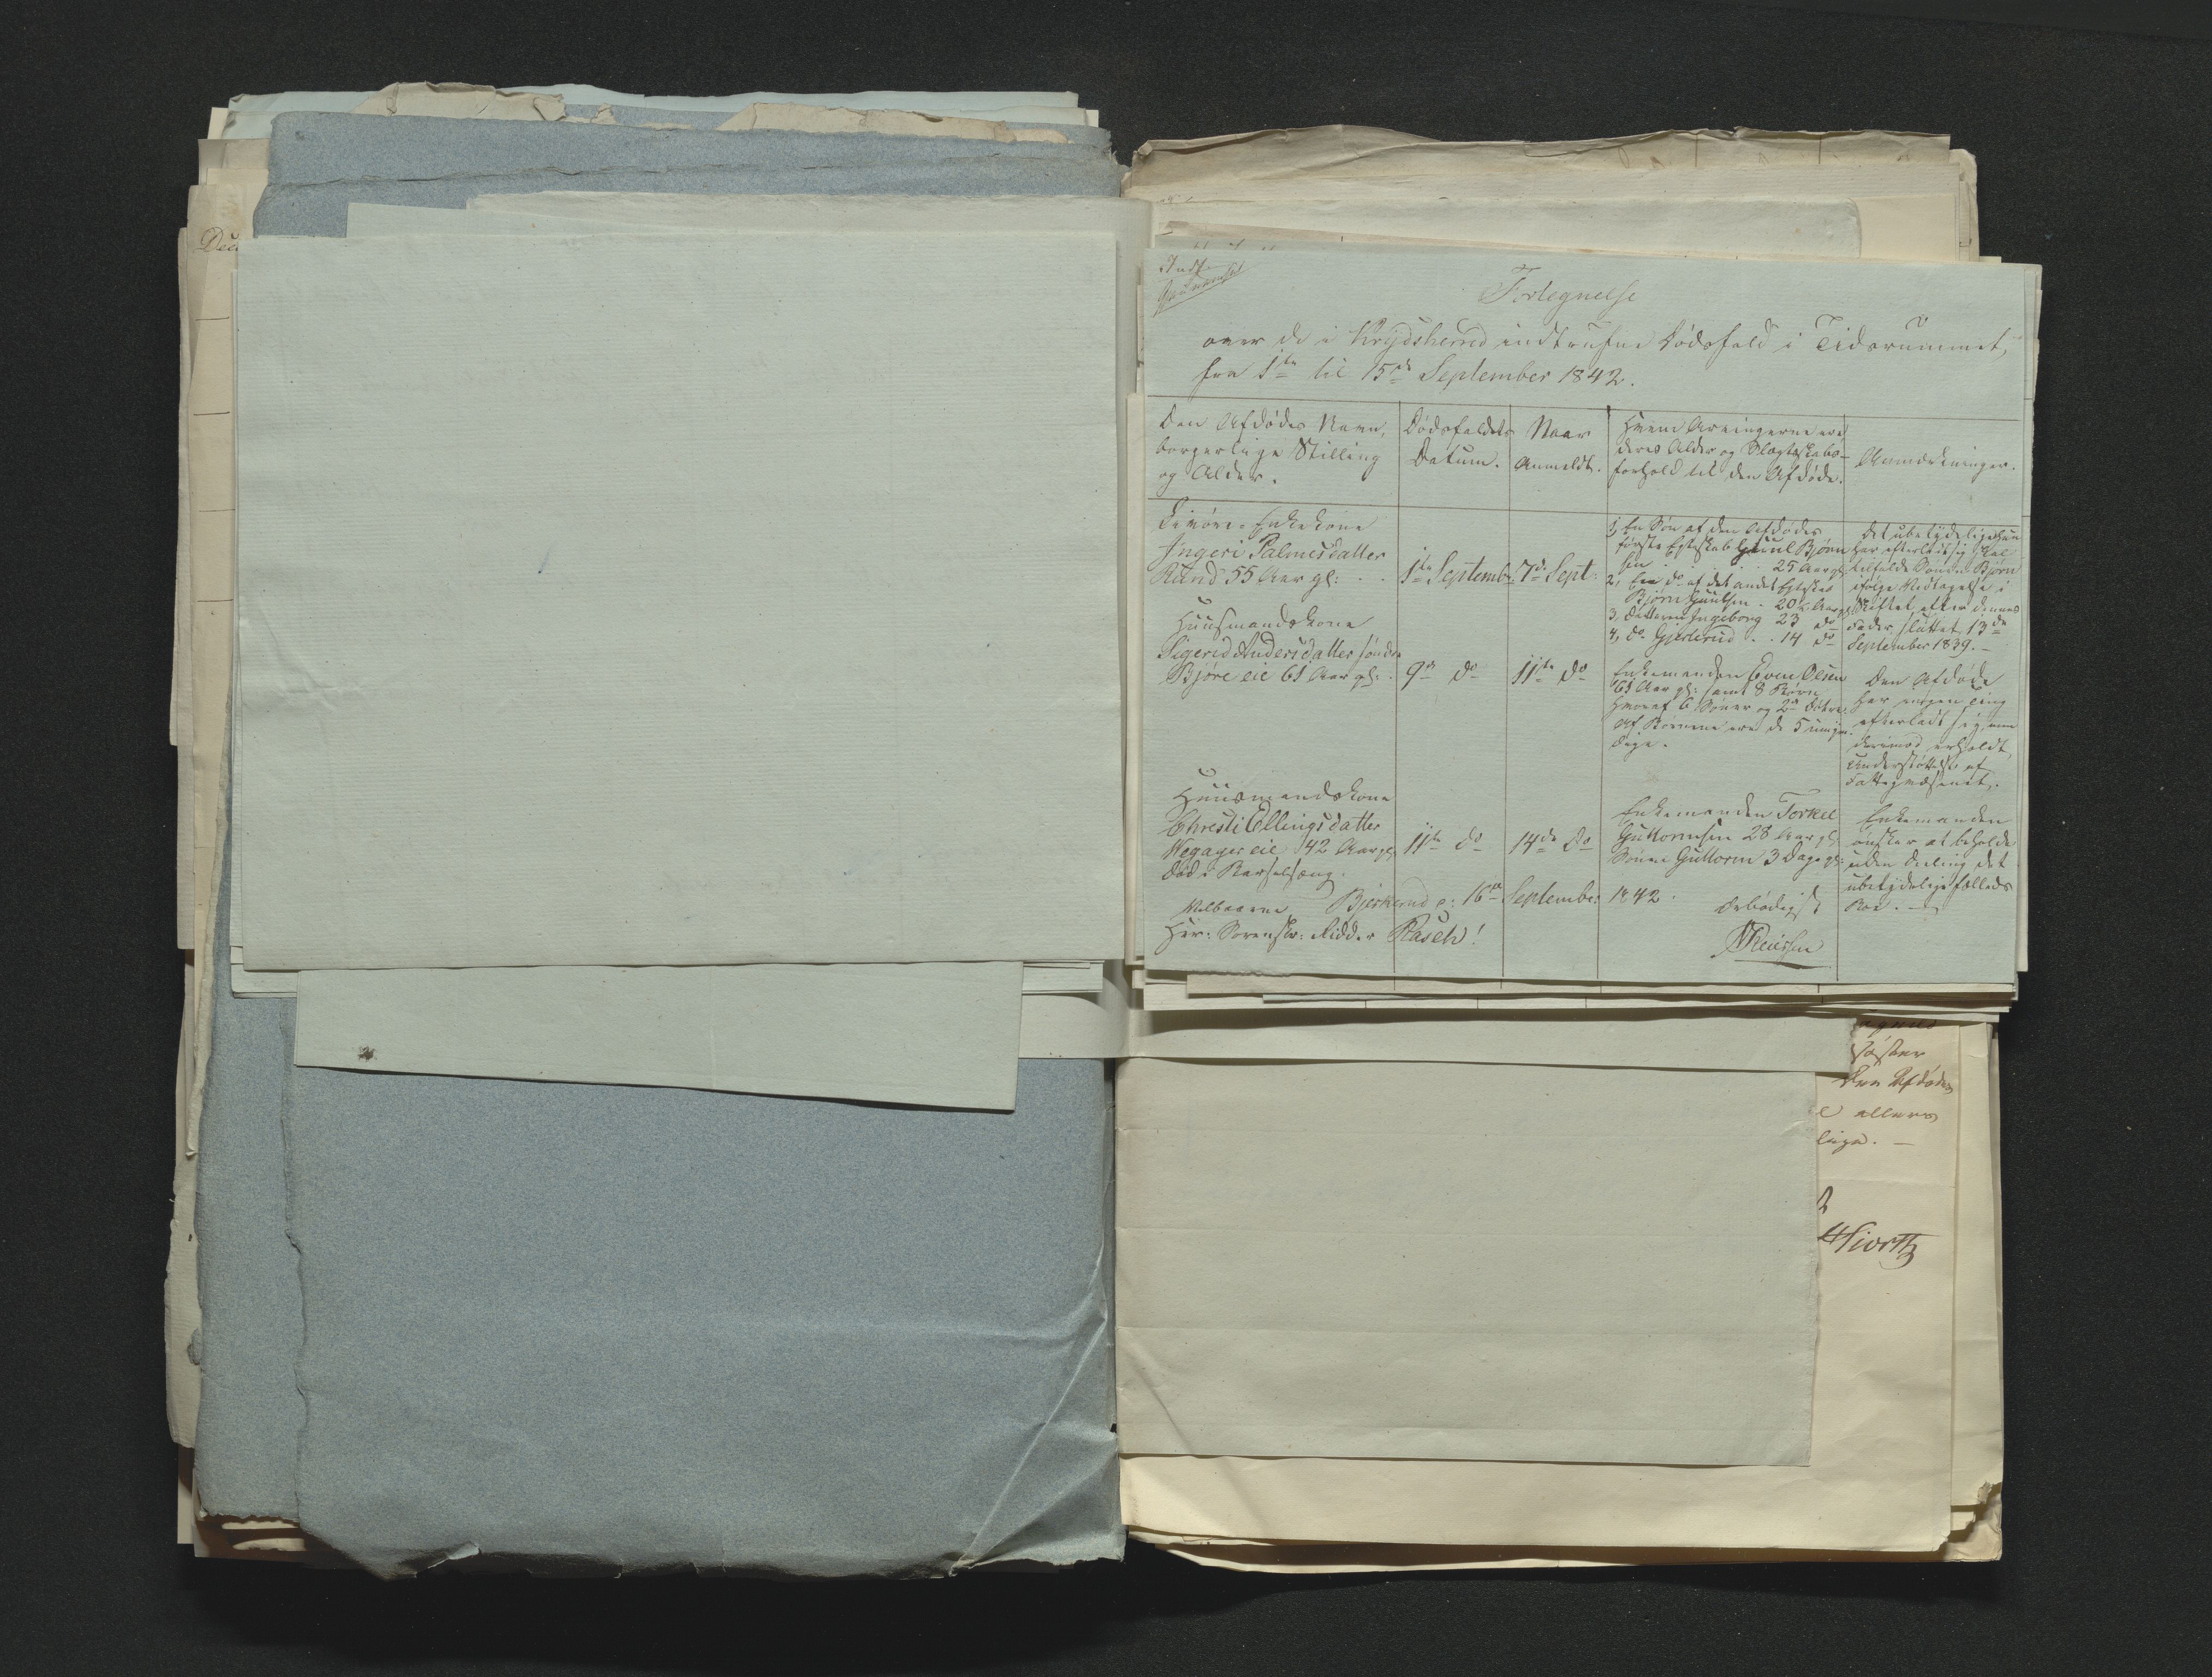 Dec
Fortegnelse
over de i Krydsherred indtrufne Dødsfald i Tidsrummet,
fra 1ste til 15de September 1842.
Den Afdødes Navn,
borgerlige Stilling
og Alder.
Dødsfaldets
Datum.
Naar
Anmeldt.
Hvem Arvingerne ere,
deres Alder og Slægtskabs-
forhold til den Afdøde.
Anmærkninger.
Enkekone
Ingeri Palmesdatter
Rund 55 Aar gl:
1ste Septemb:
7de Sept:
1, En Søn af den Afdødes
første Egteskab Bjørn
sen 25 Aar gl:
2, En do af det andet Egteskab
Bjørn 20 Aar gl:
3, Datteren Ingeborg 23 do
4, do Gjertrud . . 14 do
Det ubetydelige hun
har efterladt sig, skal
tilfalde Sønnen Bjørn
ifølge Vedtagelse i
Skiftet efter dennes
Fader, sluttet 13de
September 1839. –
Huusmandskone
Sigerid Andersdatter søndre
Bjøre eie 61 Aar gl:
9de do
11te do
Enkemanden Even Olsen
61 Aar gl: samt 8 Børn
hvoraf 6 Sønner og 2de Døtre.
Af Børnene ere de 5 umyn-
dige.
Den Afdøde
har ingen Ting
efterladt sig, men
derimod erholdt
Understøttelse af
Fattigvæsenet.
Huusmandskone
Christi Ellingsdatter
Wegager eie 42 Aar gl:
død i Barselseng.
11te do
14de do
Enkemanden Torkel
Guttormsen 28 Aar gl:
Sønnen Guttorm 3 Dage gl:
Enkemanden
ønsker at beholde
uden Deling det
ubetydelige Fælleds
Boe. –
Bjerkerud d: 16de September 1842.
Ærbødigst
Velbaarne
Herr: Sorenskr: Ridder Rasch!
søster
den Afdødes
ellers
lige. –
Hiorth